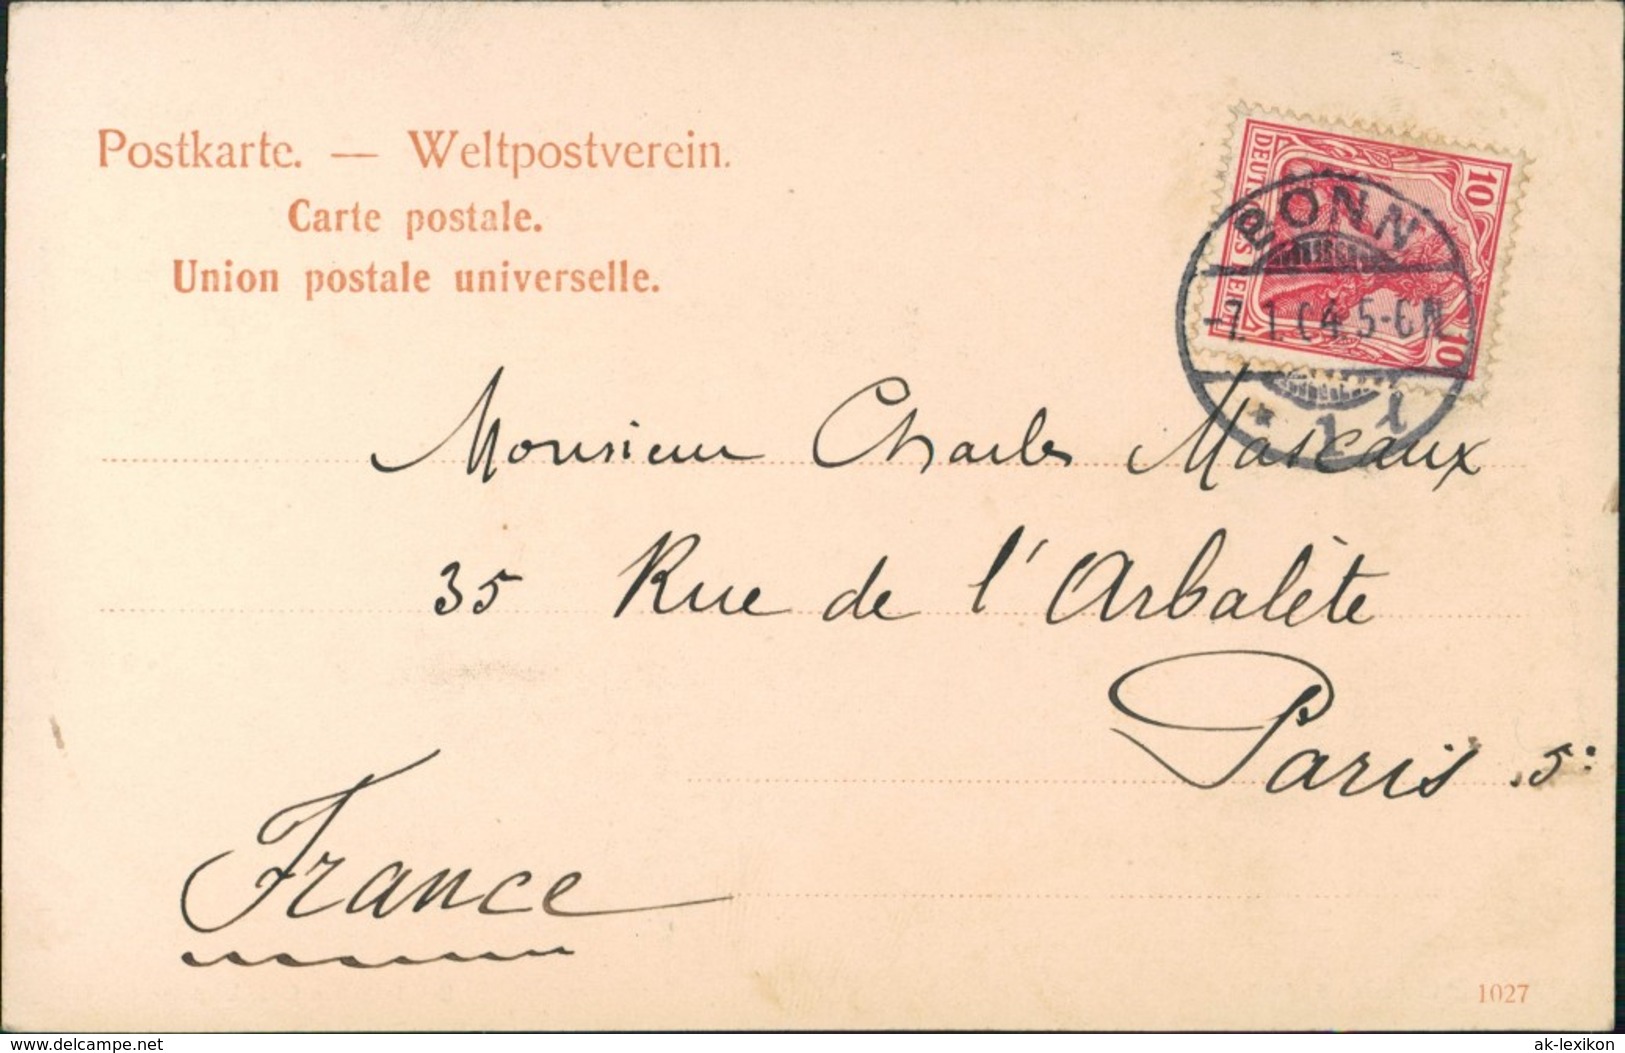 Postkarte. — Weltpostverein.
Carte postale.
Union postale universelle.
10
DEUTSCHES REICH
10
BONN
-7.1.04.5-6N.
* 1 l
Monsieur Charles Mascaux
35 Rue de l'Arbalète
Paris 5:
France
1027
delcampe.net
ak-lexikon